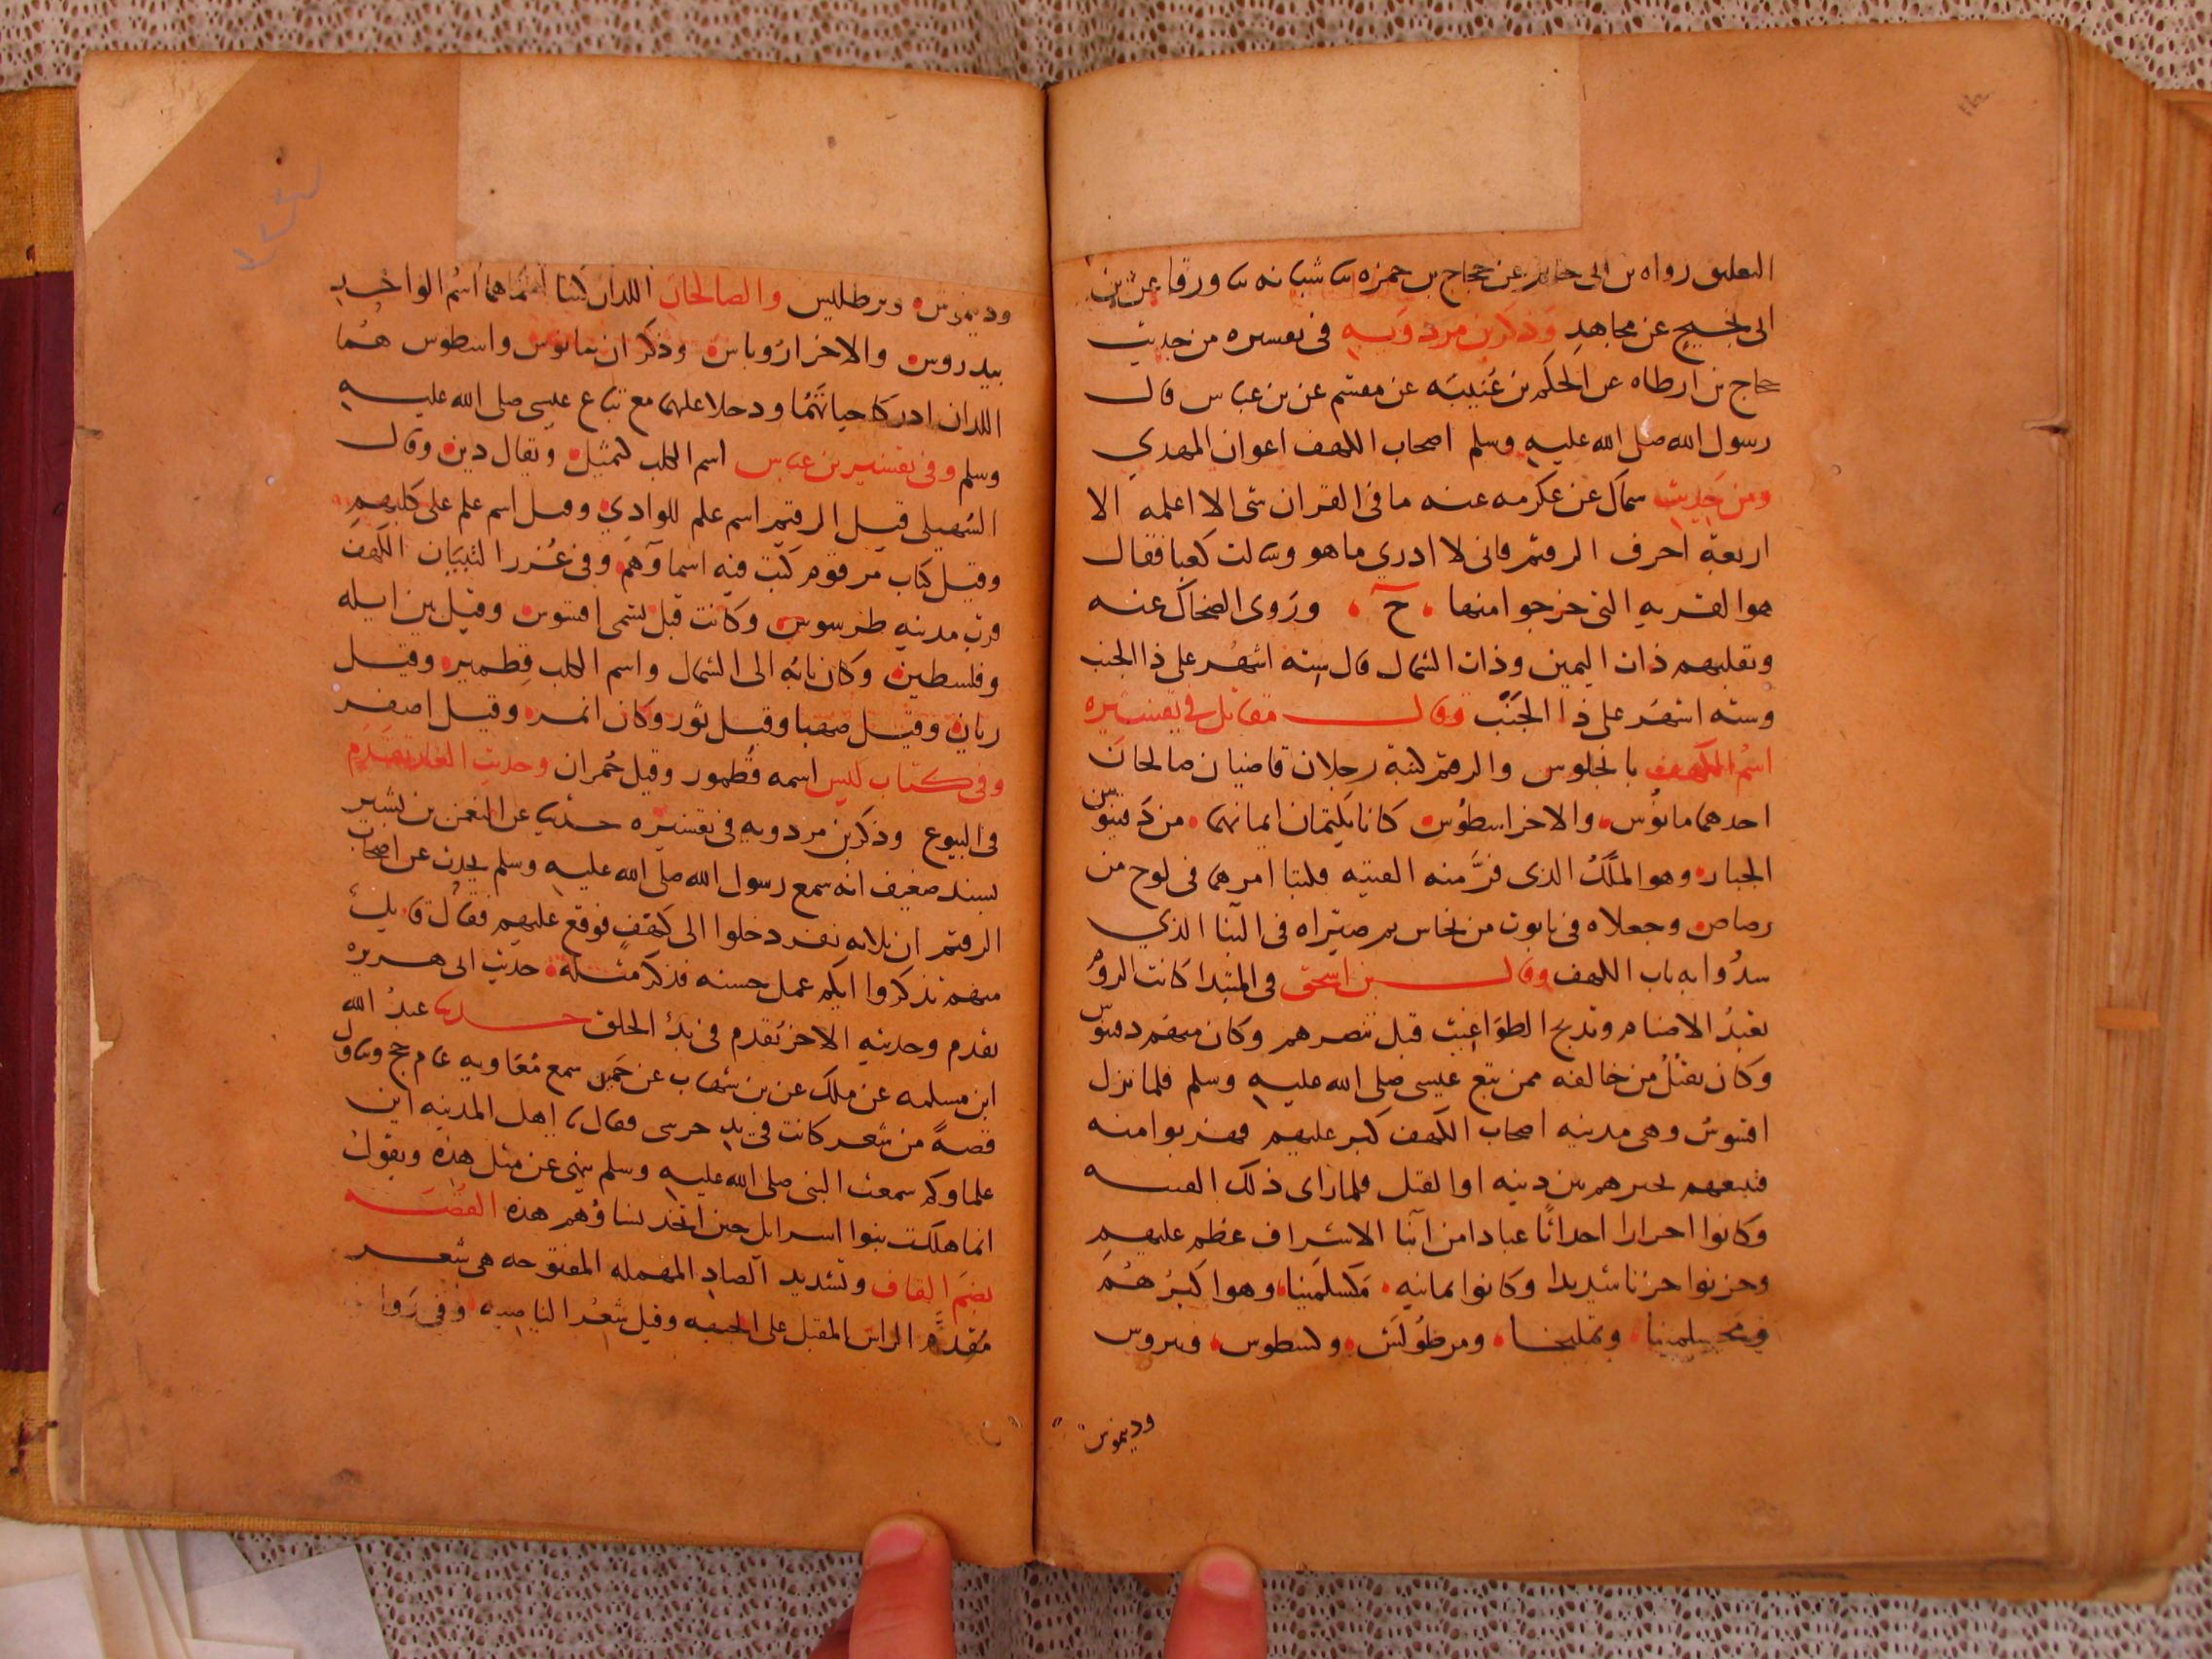 التعليق رواه بن ابى حاتم عن حجاج بن حمزه ثنا شبابه ثنا ورقا عن بن
ابى نجيح عن مجاهد وذكر بن مردويه فى تفسيره من حديث
حجاج بن ارطاه عن الحكم بن عتيبه عن مقسم عن بن عباس قال
رسول الله صلى الله عليه وسلم اصحاب الكهف اعوان المهدي
ومن حديث سماك عن عكرمه عنه ما فى القران شى الا اعلمه الا
اربعة احرف الرقيم فانى لا ادري ما هو وسالت كعبا فقال
هو القريه التى خرجوا منها ح وروى الضحاك عنه
ونقلبهم ذات اليمين وذات الشمال قال سته اشهر على ذا الجنب
وسته اشهر على ذا الجنب وقال مقاتل فى تفسيره
اسم الكهف بانجلوس والرقيم كتبه رجلان قاضيان صالحان
احدهما مانوس والاخر اسطوس كانا يكتمان ايمانهما من دقينوس
الجبار وهو الملك الذى فر منه الفتيه فكتبا امرهما فى لوح من
رصاص وجعلاه فى تابوت من نحاس ثم صيراه فى البنا الذي
سدوا به باب الكهف وقال بن اسحق فى المبتدا كانت الروم
تعبد الاصنام وتذبح الطواغيت قبل تنصرهم وكان منهم دقينوس
وكان يقتل من خالفه ممن تبع عيسى صلى الله عليه وسلم فلما نزل
افسوس وهى مدينه اصحاب الكهف كبر عليهم فهربوا منه
فتبعهم يخيرهم بين دينه او القتل فلما راى ذلك الفتيه
وكانوا احرارا احداثا عبادا من ابنا الاشراف عظم عليهم
وحزنوا حزنا شديدا وكانوا ثمانيه مكسلمينا وهو اكبرهم
ومحسيلمينا وتمليخا ومرطولش وكسطوس وبيروس
وديموس
وديموس وبرطليس والصالحان اللذان كتبا امرهما اسم الواحد
بيدروس والاخر اروباس وذكر ان مانوس واسطوس هما
اللذان ادركا حياتهما ودخلا عليهما مع تباع عيسى صلى الله عليه
وسلم وفى تفسير بن عباس اسم الكلب كتمثيل ويقال دين وقال
السهيلى قيل الرقيم اسم علم للوادي وقيل اسم علم على كلبهم
وقيل كتاب مرقوم كتب فيه اسماوهم وفى غرر التبيان الكهف
قرب مدينه طرسوس وكانت قبل تسمى افسوس وقيل بين ايله
وفلسطين وكان بابه الى الشمال واسم الكلب قطمير وقيل
ريان وقيل صهبا وقيل ثور وكان انمر وقيل اصفر
وفى كتاب ليس اسمه قطمور وقيل حمران وحديث الغار تقدم
فى البيوع وذكر بن مردويه فى تفسيره حديث عن النعمن بن بشير
بسند ضعيف انه سمع رسول الله صلى الله عليه وسلم يحدث عن اصحاب
الرقيم ان ثلاثه نفر دخلوا الى كهف فوقع عليهم فقال قايل
منهم تذكروا ايكم عمل حسنه فذكر مثله حديث ابى هريره
تقدم وحديثه الاخر تقدم فى بدئ الخلق حديث عبد الله
ابن مسلمه عن ملك عن بن شهاب عن حميد سمع معاويه عام حج وتناول
قصة من شعر كانت فى يد حرسى فقال يا اهل المدينه اين
علماوكم سمعت النبى صلى الله عليه وسلم ينهى عن مثل هذه ويقول
انما هلكت بنوا اسرايل حين اتخذ نساؤهم هذه القصه
بضم القاف وتشديد الصاد المهمله المفتوحه هى شعر
مقدم الراس المقبل على الجبهه وقيل شعر الناصيه وفى روا